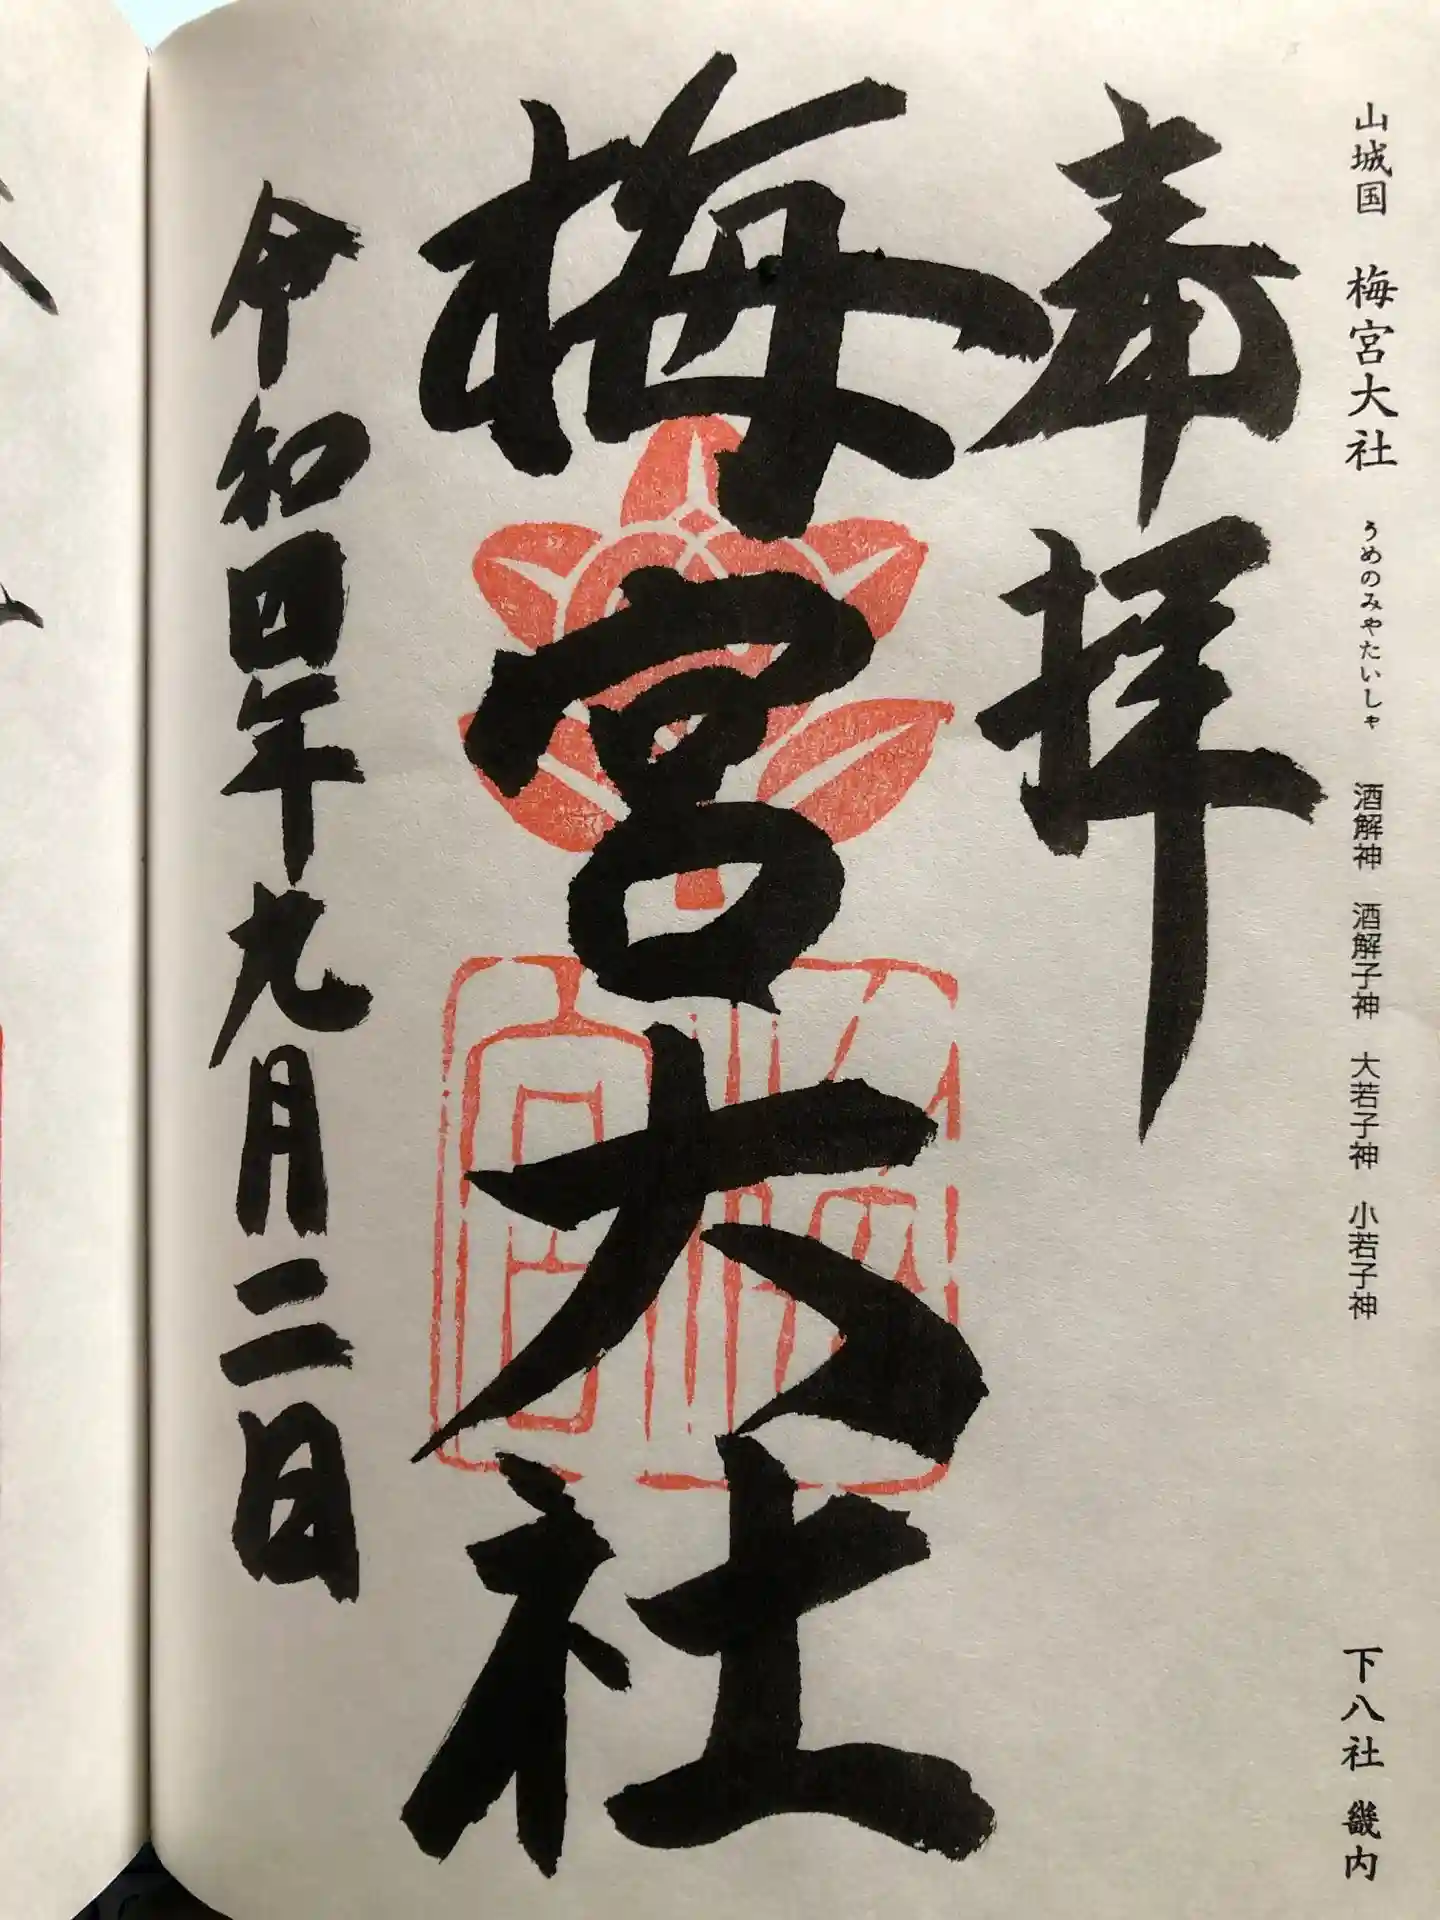 山城国 梅宮大社 うめのみやたいしゃ 酒解神 酒解子神 大若子神 小若子神 下八社 畿内
奉拝
梅宮大社
令和四年九月二日